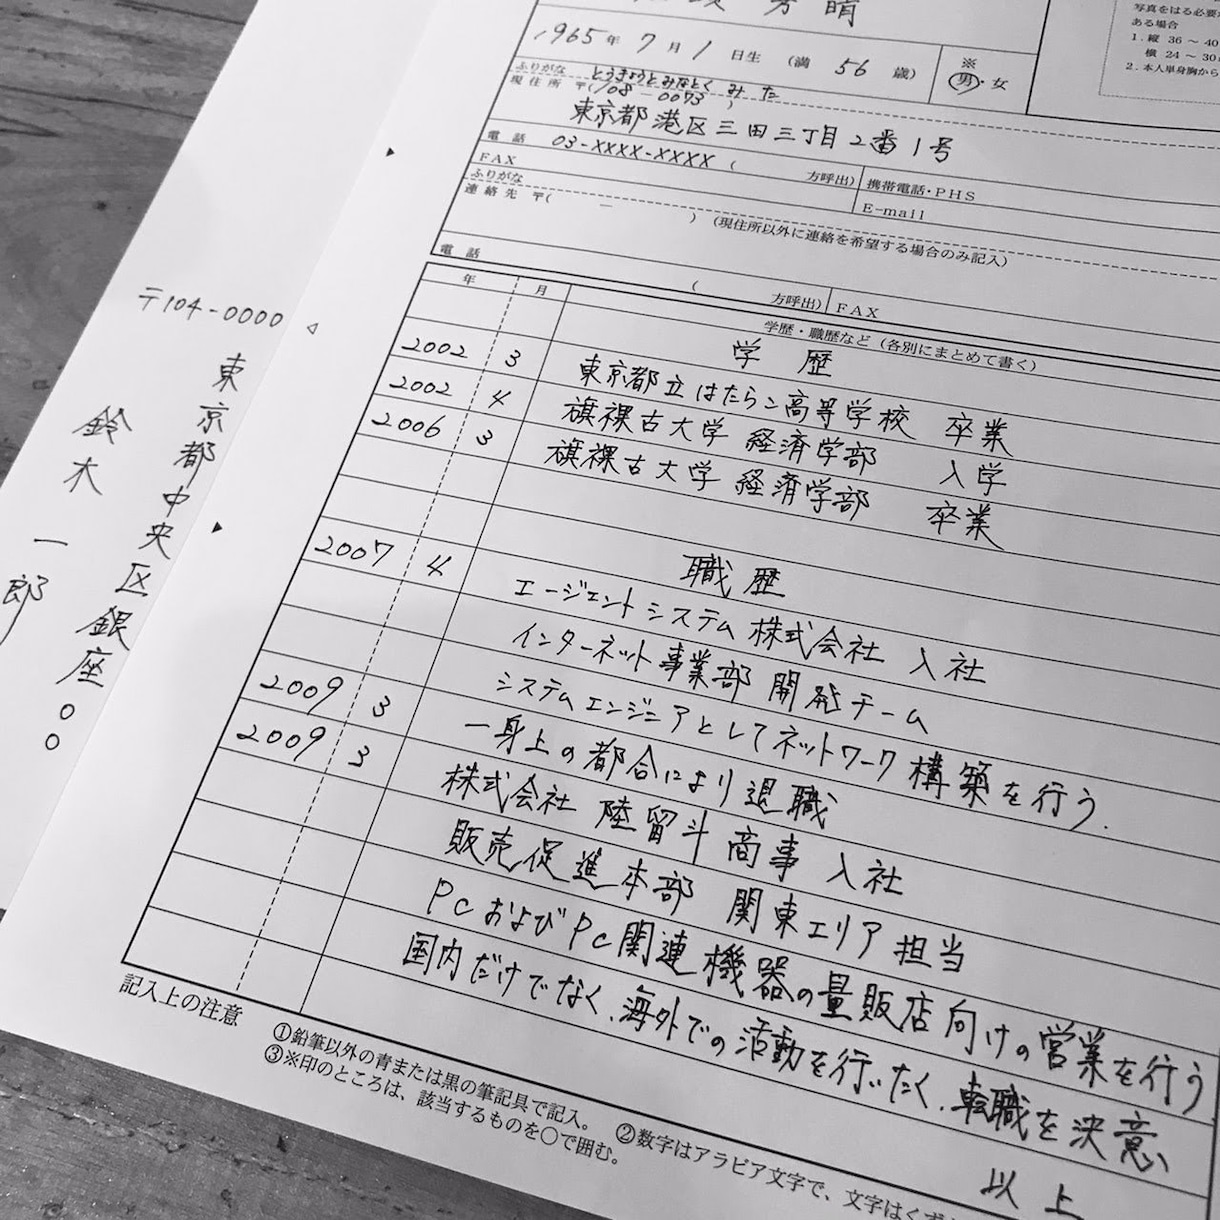 1965年 7月 1日生 (満 56 歳)
※
男・女
写真をはる必要
ある場合
1. 縦 36 〜 40
横 24 〜 30
2. 本人単身胸から
ふりがな とうきょうとみなとく みた
現住所 〒(108 0073 )
東京都港区三田三丁目2番1号
電話 03-XXXX-XXXX ( 方呼出)
携帯電話・PHS
FAX
E-mail
ふりがな
連絡先 〒( ― ) (現住所以外に連絡を希望する場合のみ記入)
電話 ( 方呼出) FAX
年 月 学歴・職歴など (各別にまとめて書く)
学 歴
2002 3 東京都立はたらこ高等学校 卒業
2002 4 旗裸古大学 経済学部 入学
2006 3 旗裸古大学 経済学部 卒業
職歴
2007 4 エージェントシステム株式会社 入社
インターネット事業部 開発チーム
システムエンジニアとしてネットワーク構築を行う.
2009 3 一身上の都合により退職
2009 3 株式会社 陸留斗商事 入社
販売促進本部 関東エリア担当
PCおよびPC関連機器の量販店向けの営業を行う
国内だけでなく、海外での活動を行いたく、転職を決意
以上
記入上の注意
①鉛筆以外の青または黒の筆記具で記入。 ②数字はアラビア文字で、文字はくず
③※印のところは、該当するものを○で囲む。
〒104-0000
東京都中央区銀座○○
鈴木 一郎